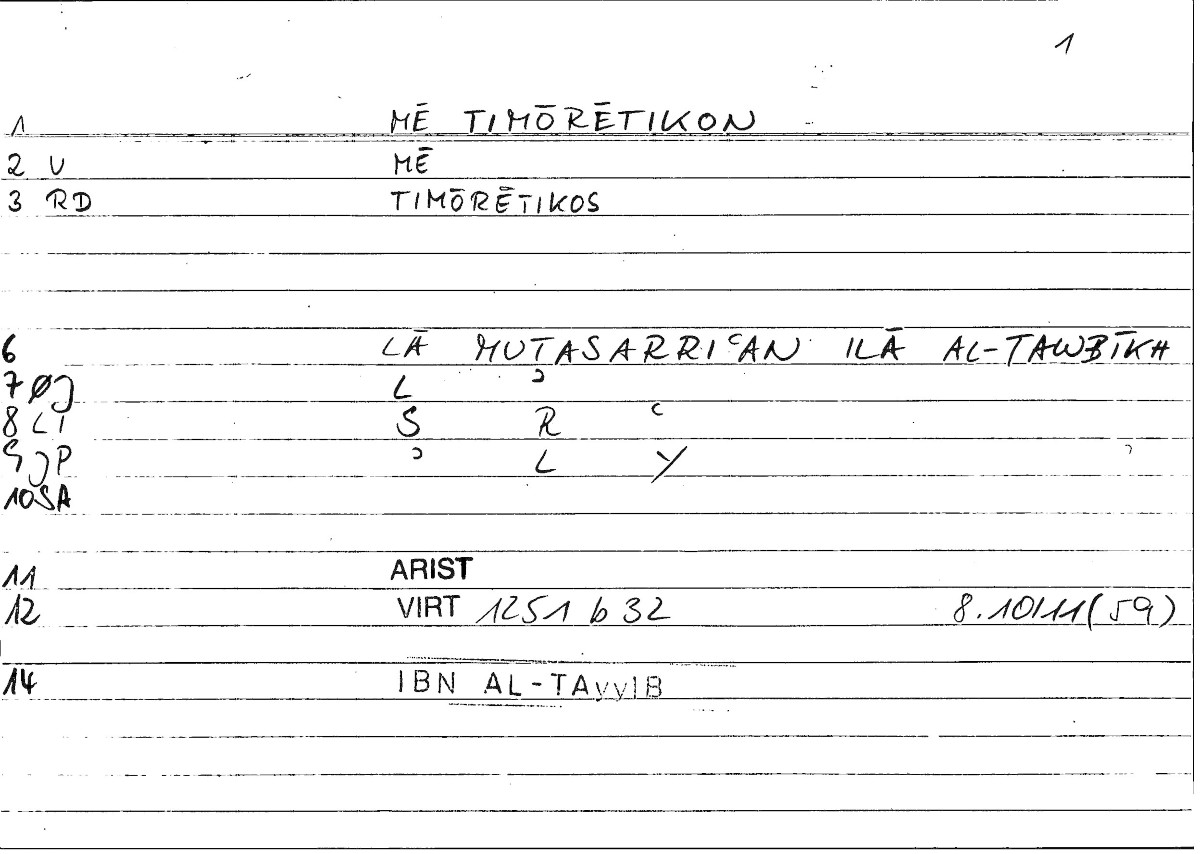 1
1 MĒ TIMŌRĒTIKON
2 U MĒ
3 RD TIMŌRĒTIKOS
6 LĀ MUTASARRIʿAN ILĀ AL-TAWBĪKH
7 ØJ L ʾ
8 LI S R ʿ
9 JP ʾ L Y
10 SA
11 ARIST
12 VIRT 1251 b 32 8.10/11(59)
14 IBN AL-TAyyIB